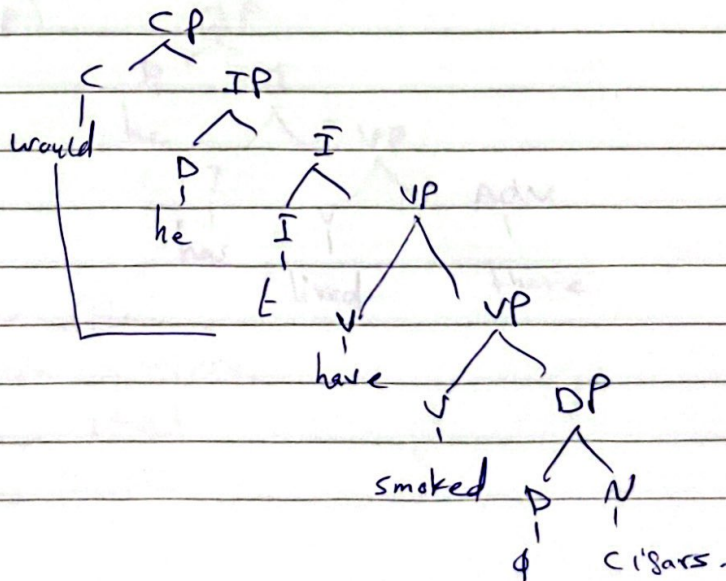 CP
C IP
would D Ī
he I VP
t V VP
have V DP
smoked D N
ϕ Cigars.